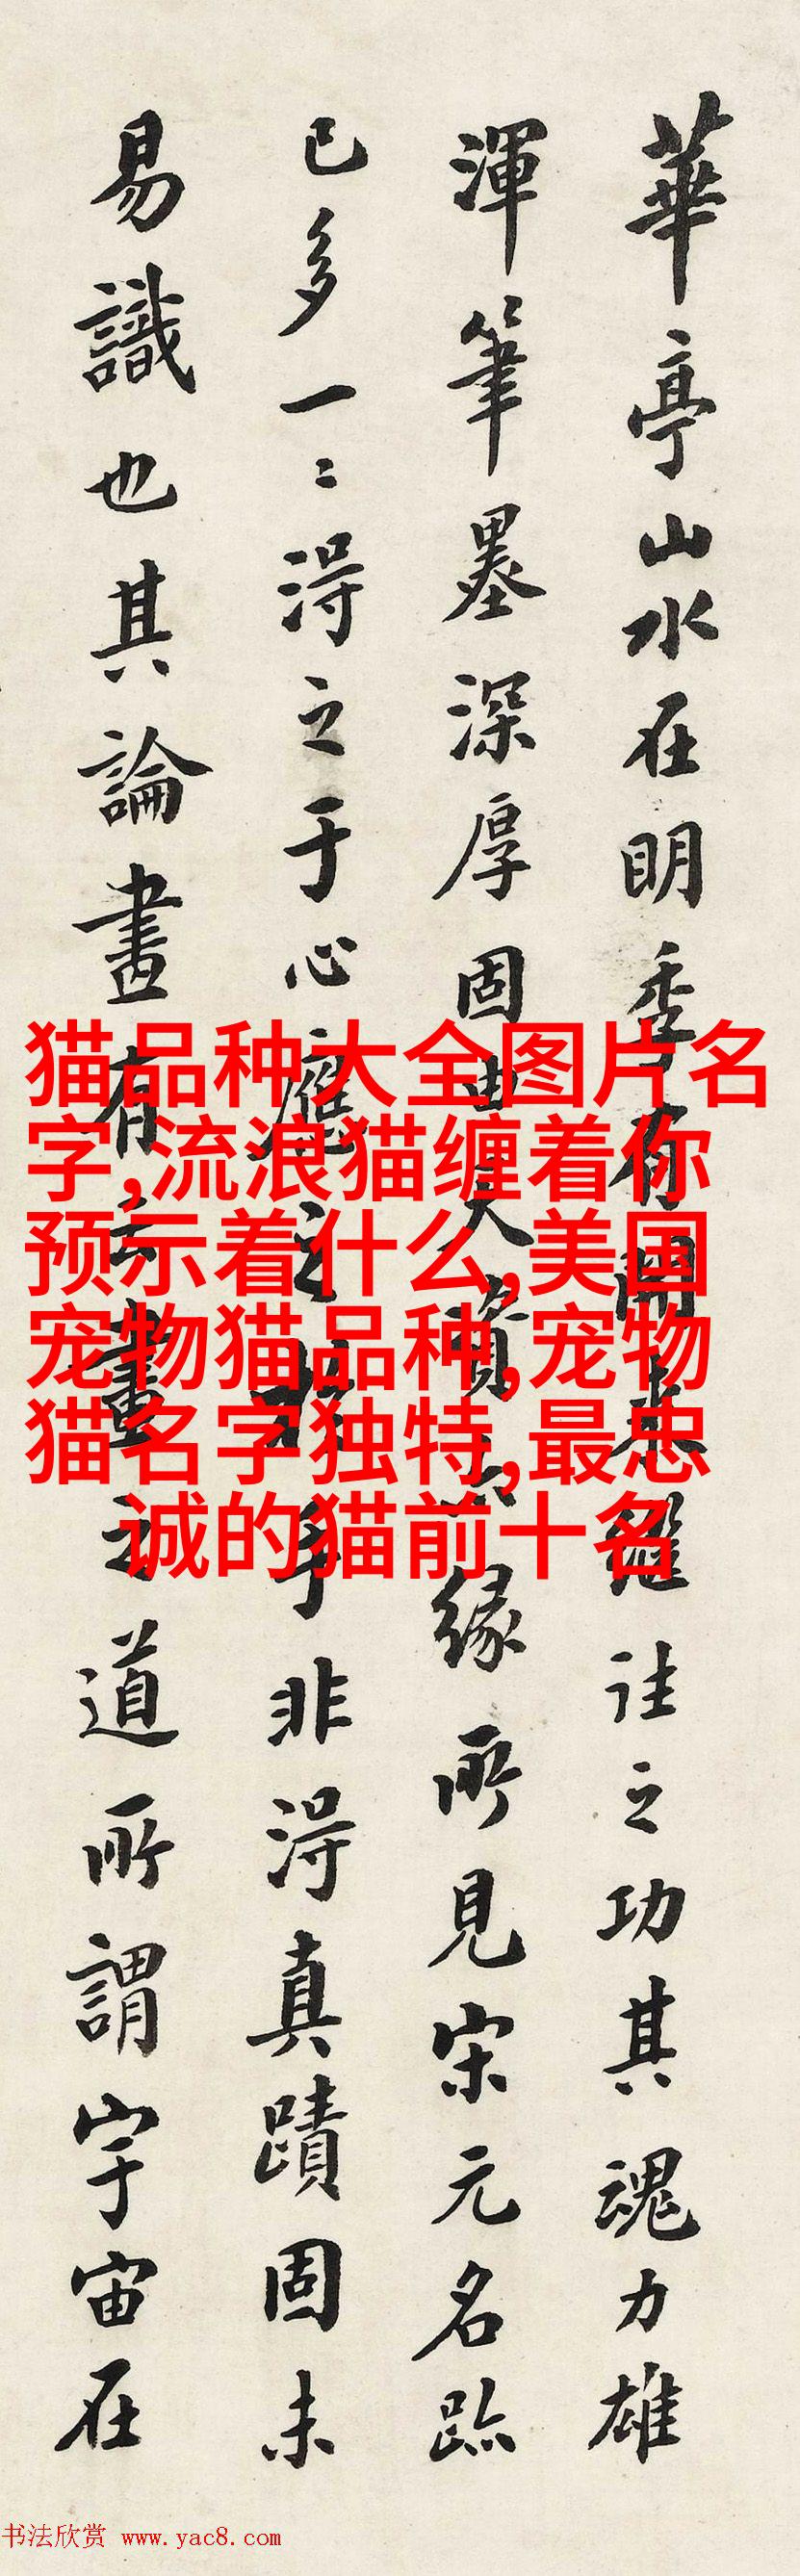 華亭山水在明季有開來繼往之功其魂力雄
渾筆墨深厚固由天資亦緣所見宋元名跡
已多一二得之于心應之非手非得真蹟固未
易識也其論畫有云畫之道所謂宇宙在
猫品种大全图片名
字,流浪猫缠着你
预示着什么,美国
宠物猫品种,宠物
猫名字独特,最忠
诚的猫前十名
书法欣赏 www.yac8.com